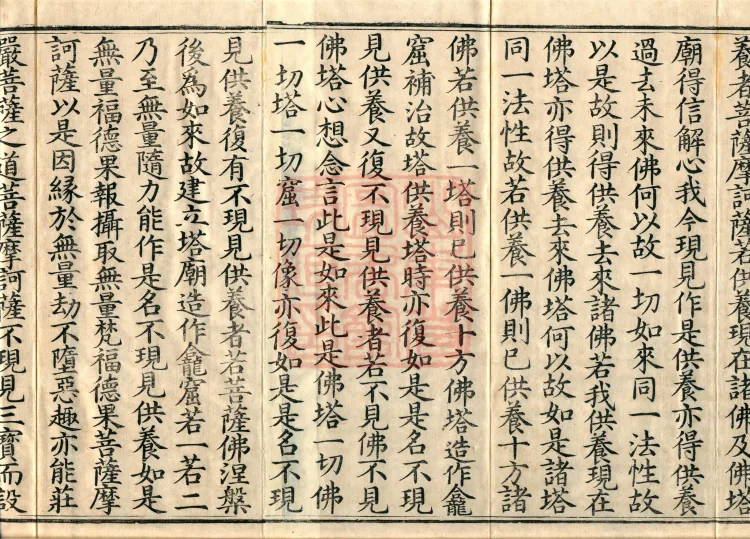 養者菩薩摩訶薩若供養現在諸佛及佛塔
廟得信解心我今現見作是供養亦得供養
過去未來佛何以故一切如來同一法性故
以是故則得供養去來諸佛若我供養現在
佛塔亦得供養去來佛塔何以故如是諸塔
同一法性故若供養一佛則已供養十方諸
佛若供養一塔則已供養十方佛塔造作龕
窟補治故塔供養塔時亦復如是是名不現
見供養又復不現見供養者若不見佛不見
佛塔心想念言此是如來此是佛塔一切佛
一切塔一切窟一切像亦復如是是名不現
見供養復有不現見供養者若菩薩佛涅槃
後為如來故建立塔廟造作龕窟若一若二
乃至無量隨力能作是名不現見供養如是
無量福德果報攝取無量梵福德果菩薩摩
訶薩以是因緣於無量劫不墮惡趣亦能莊
嚴菩薩之道菩薩摩訶薩不現見三寶而設